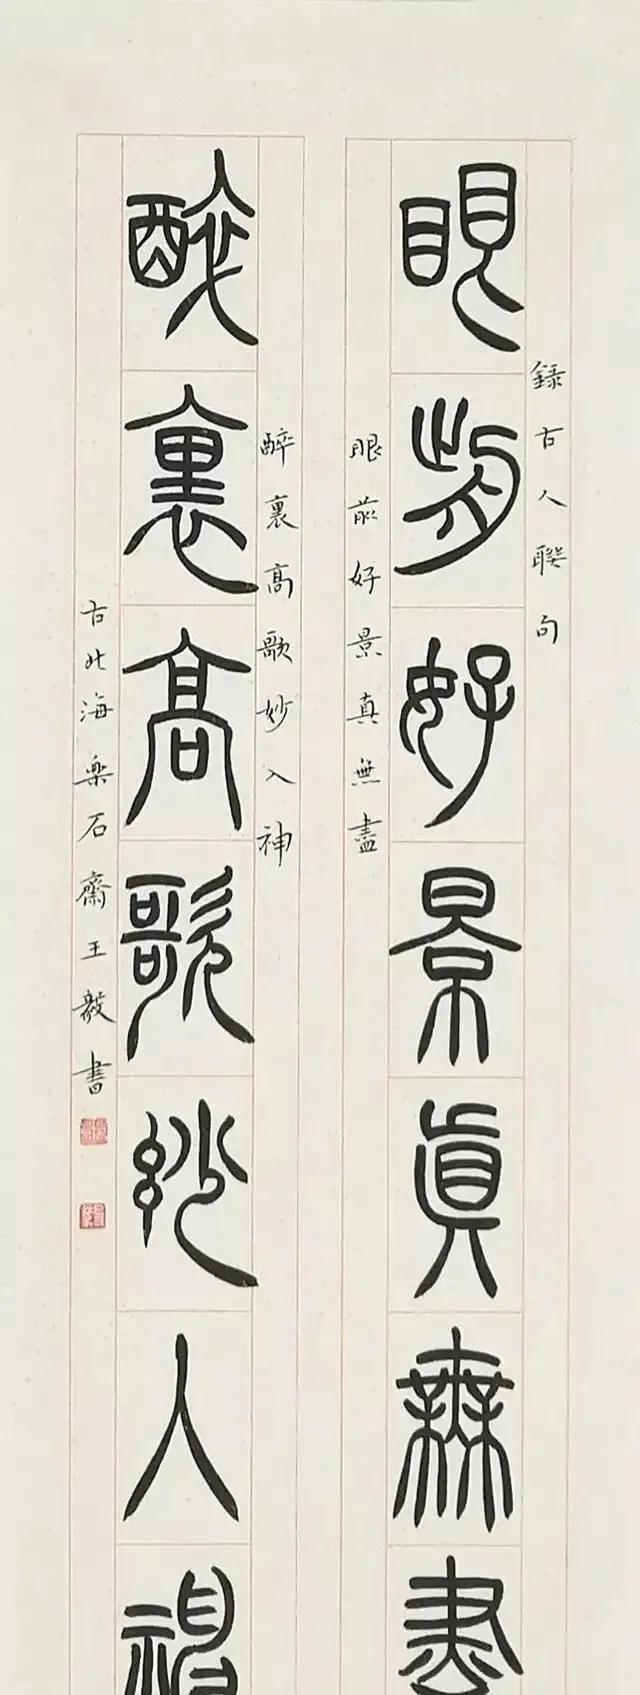 錄古人聯句
眼前好景真無盡
眼前好景真無盡
醉裏高歌妙入神
醉裏高歌妙入神
古北海樂石齋王毅書